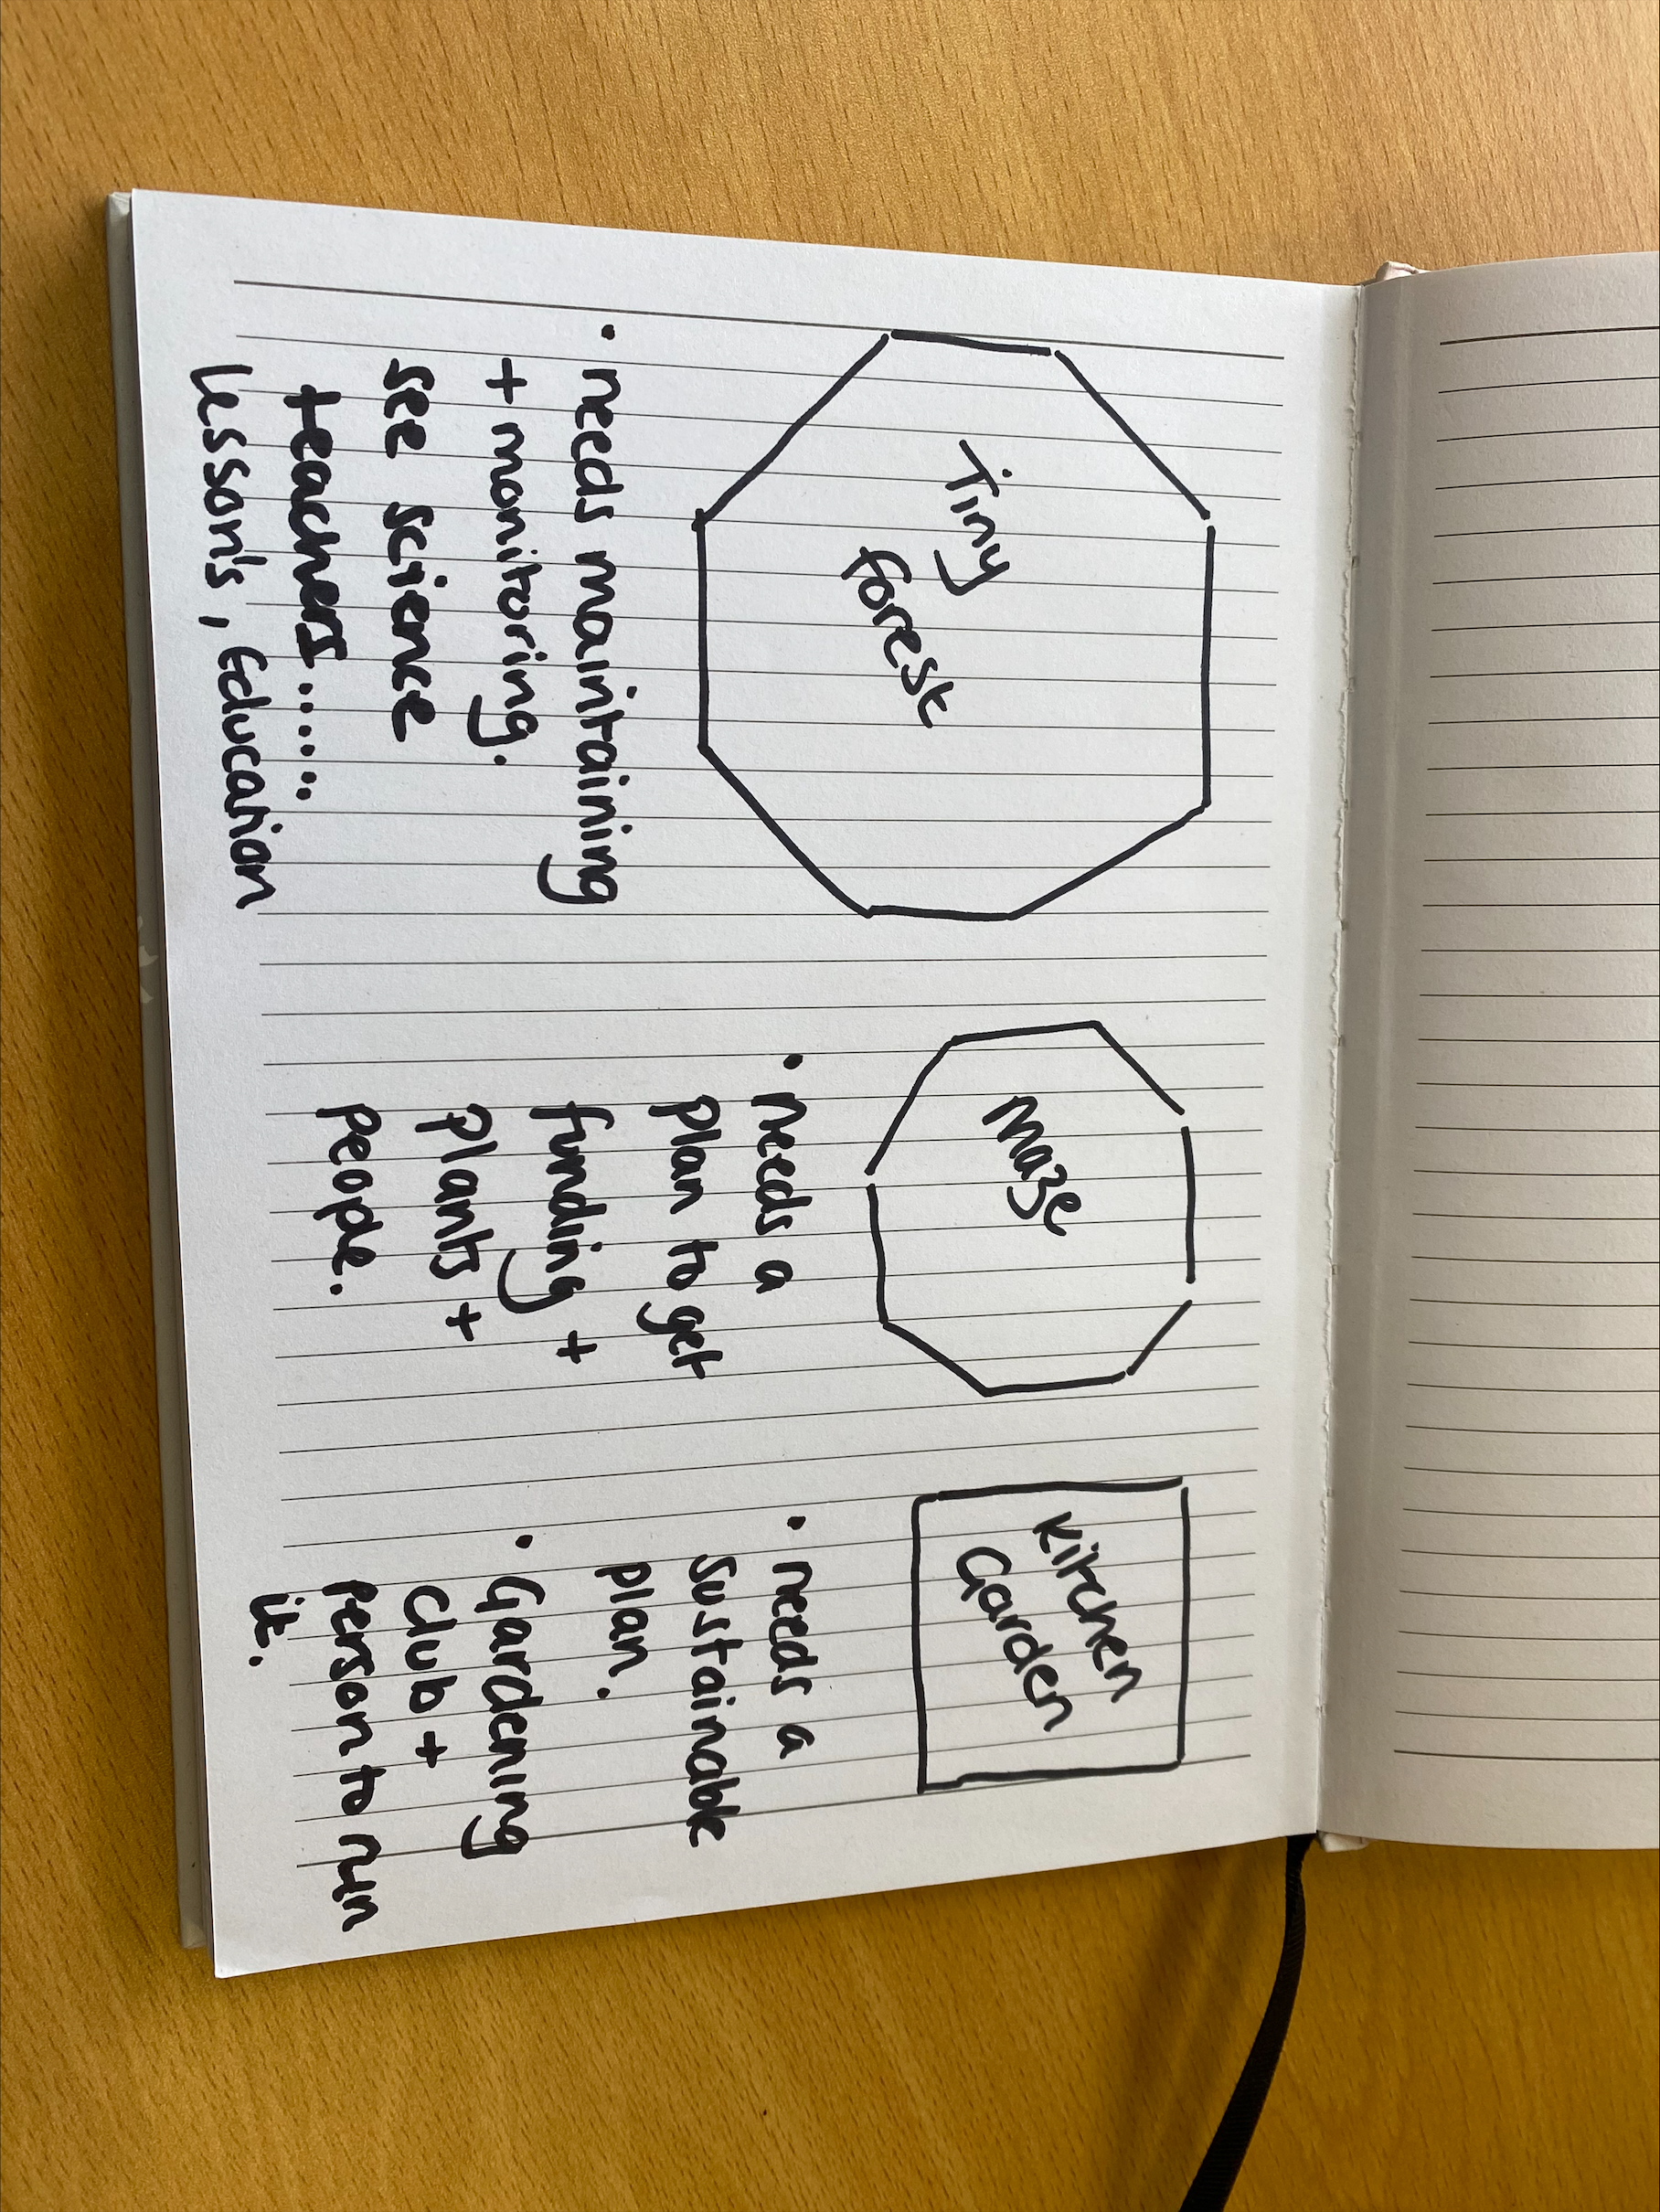 Tiny
forest
• needs maintaining
+ monitoring.
see science
teachers......
Lesson's, Education
Maze
• needs a
plan to get
funding +
plants +
people.
Kitchen
Garden
• needs a
sustainable
plan.
• Gardening
club +
person to run
it.